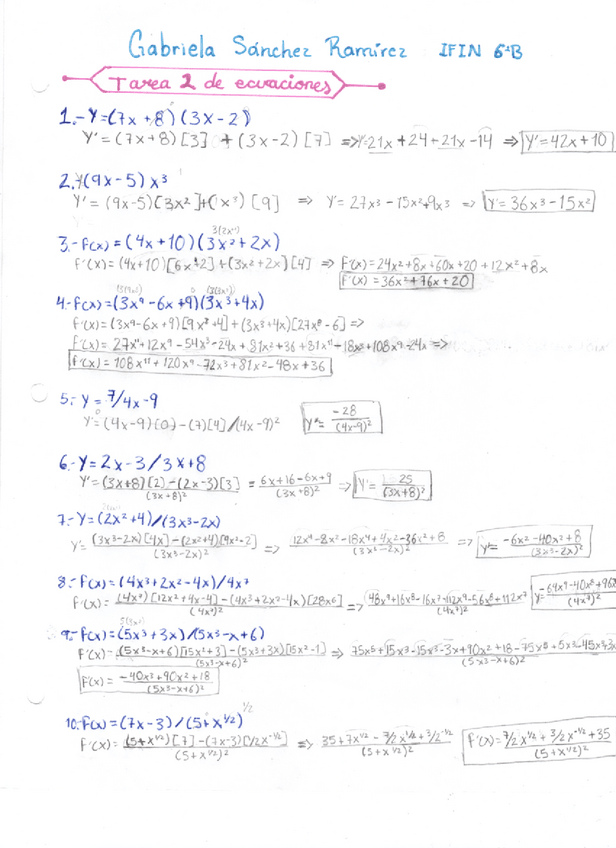 Gabriela Sánchez Ramírez IFIN 6°B
Tarea 2 de ecuaciones
1.- Y=(7x+8)(3x-2)
Y'=(7x+8)[3]+(3x-2)[7] => Y'=21x+24+21x-14 => Y'=42x+10
2.- Y(9x-5)x³
Y'=(9x-5)[3x²]+(x³)[9] => Y'=27x³-15x²+9x³ => Y'=36x³-15x²
3.- f(x)=(4x+10)(3x²+2x)
f'(x)=(4x+10)[6x+2]+(3x²+2x)[4] => f'(x)=24x²+8x+60x+20+12x²+8x
f'(x)=36x²+76x+20
4.- f(x)=(3x⁹-6x+9)(3x³+4x)
f'(x)=(3x⁹-6x+9)[9x²+4]+(3x³+4x)[27x⁸-6] =>
f'(x)=27x¹¹+12x⁹-54x³-24x+81x²+36+81x¹¹-18x³+108x⁹-24x =>
f'(x)=108x¹¹+120x⁹-72x³+81x²-48x+36
5.- Y=7/4x-9
Y'=(4x-9)[0]-(7)[4]/(4x-9)² Y'=-28/(4x-9)²
6.- Y=2x-3/3x+8
Y'=(3x+8)[2]-(2x-3)[3]/(3x+8)² = 6x+16-6x+9/(3x+8)² => Y'=25/(3x+8)²
7.- Y=(2x²+4)/(3x³-2x)
Y'=(3x³-2x)[4x]-(2x²+4)[9x²-2]/(3x³-2x)² => 12x⁴-8x²-18x⁴+4x²-36x²+8/(3x³-2x)² => Y'=-6x²-40x²+8/(3x³-2x)²
8.- f(x)=(4x³+2x²-4x)/4x⁷
f'(x)=(4x⁷)[12x²+4x-4]-(4x³+2x²-4x)[28x⁶]/(4x⁷)² =>
9.- f(x)=(5x³+3x)/(5x³-x+6)
f'(x)=(5x³-x+6)[15x²+3]-(5x³+3x)[15x²-1]/(5x³-x+6)² =>
f'(x)=-40x³+90x²+18/(5x³-x+6)²
10.- f(x)=(7x-3)/(5+x^1/2)
f'(x)=(5+x^1/2)[7]-(7x-3)[1/2x^-1/2]/(5+x^1/2)² => 35+7x^1/2-7/2x^1/2+3/2^-1/2/(5+x^1/2)² f'(x)=7/2x^1/2+3/2x^-1/2+35/(5+x^1/2)²